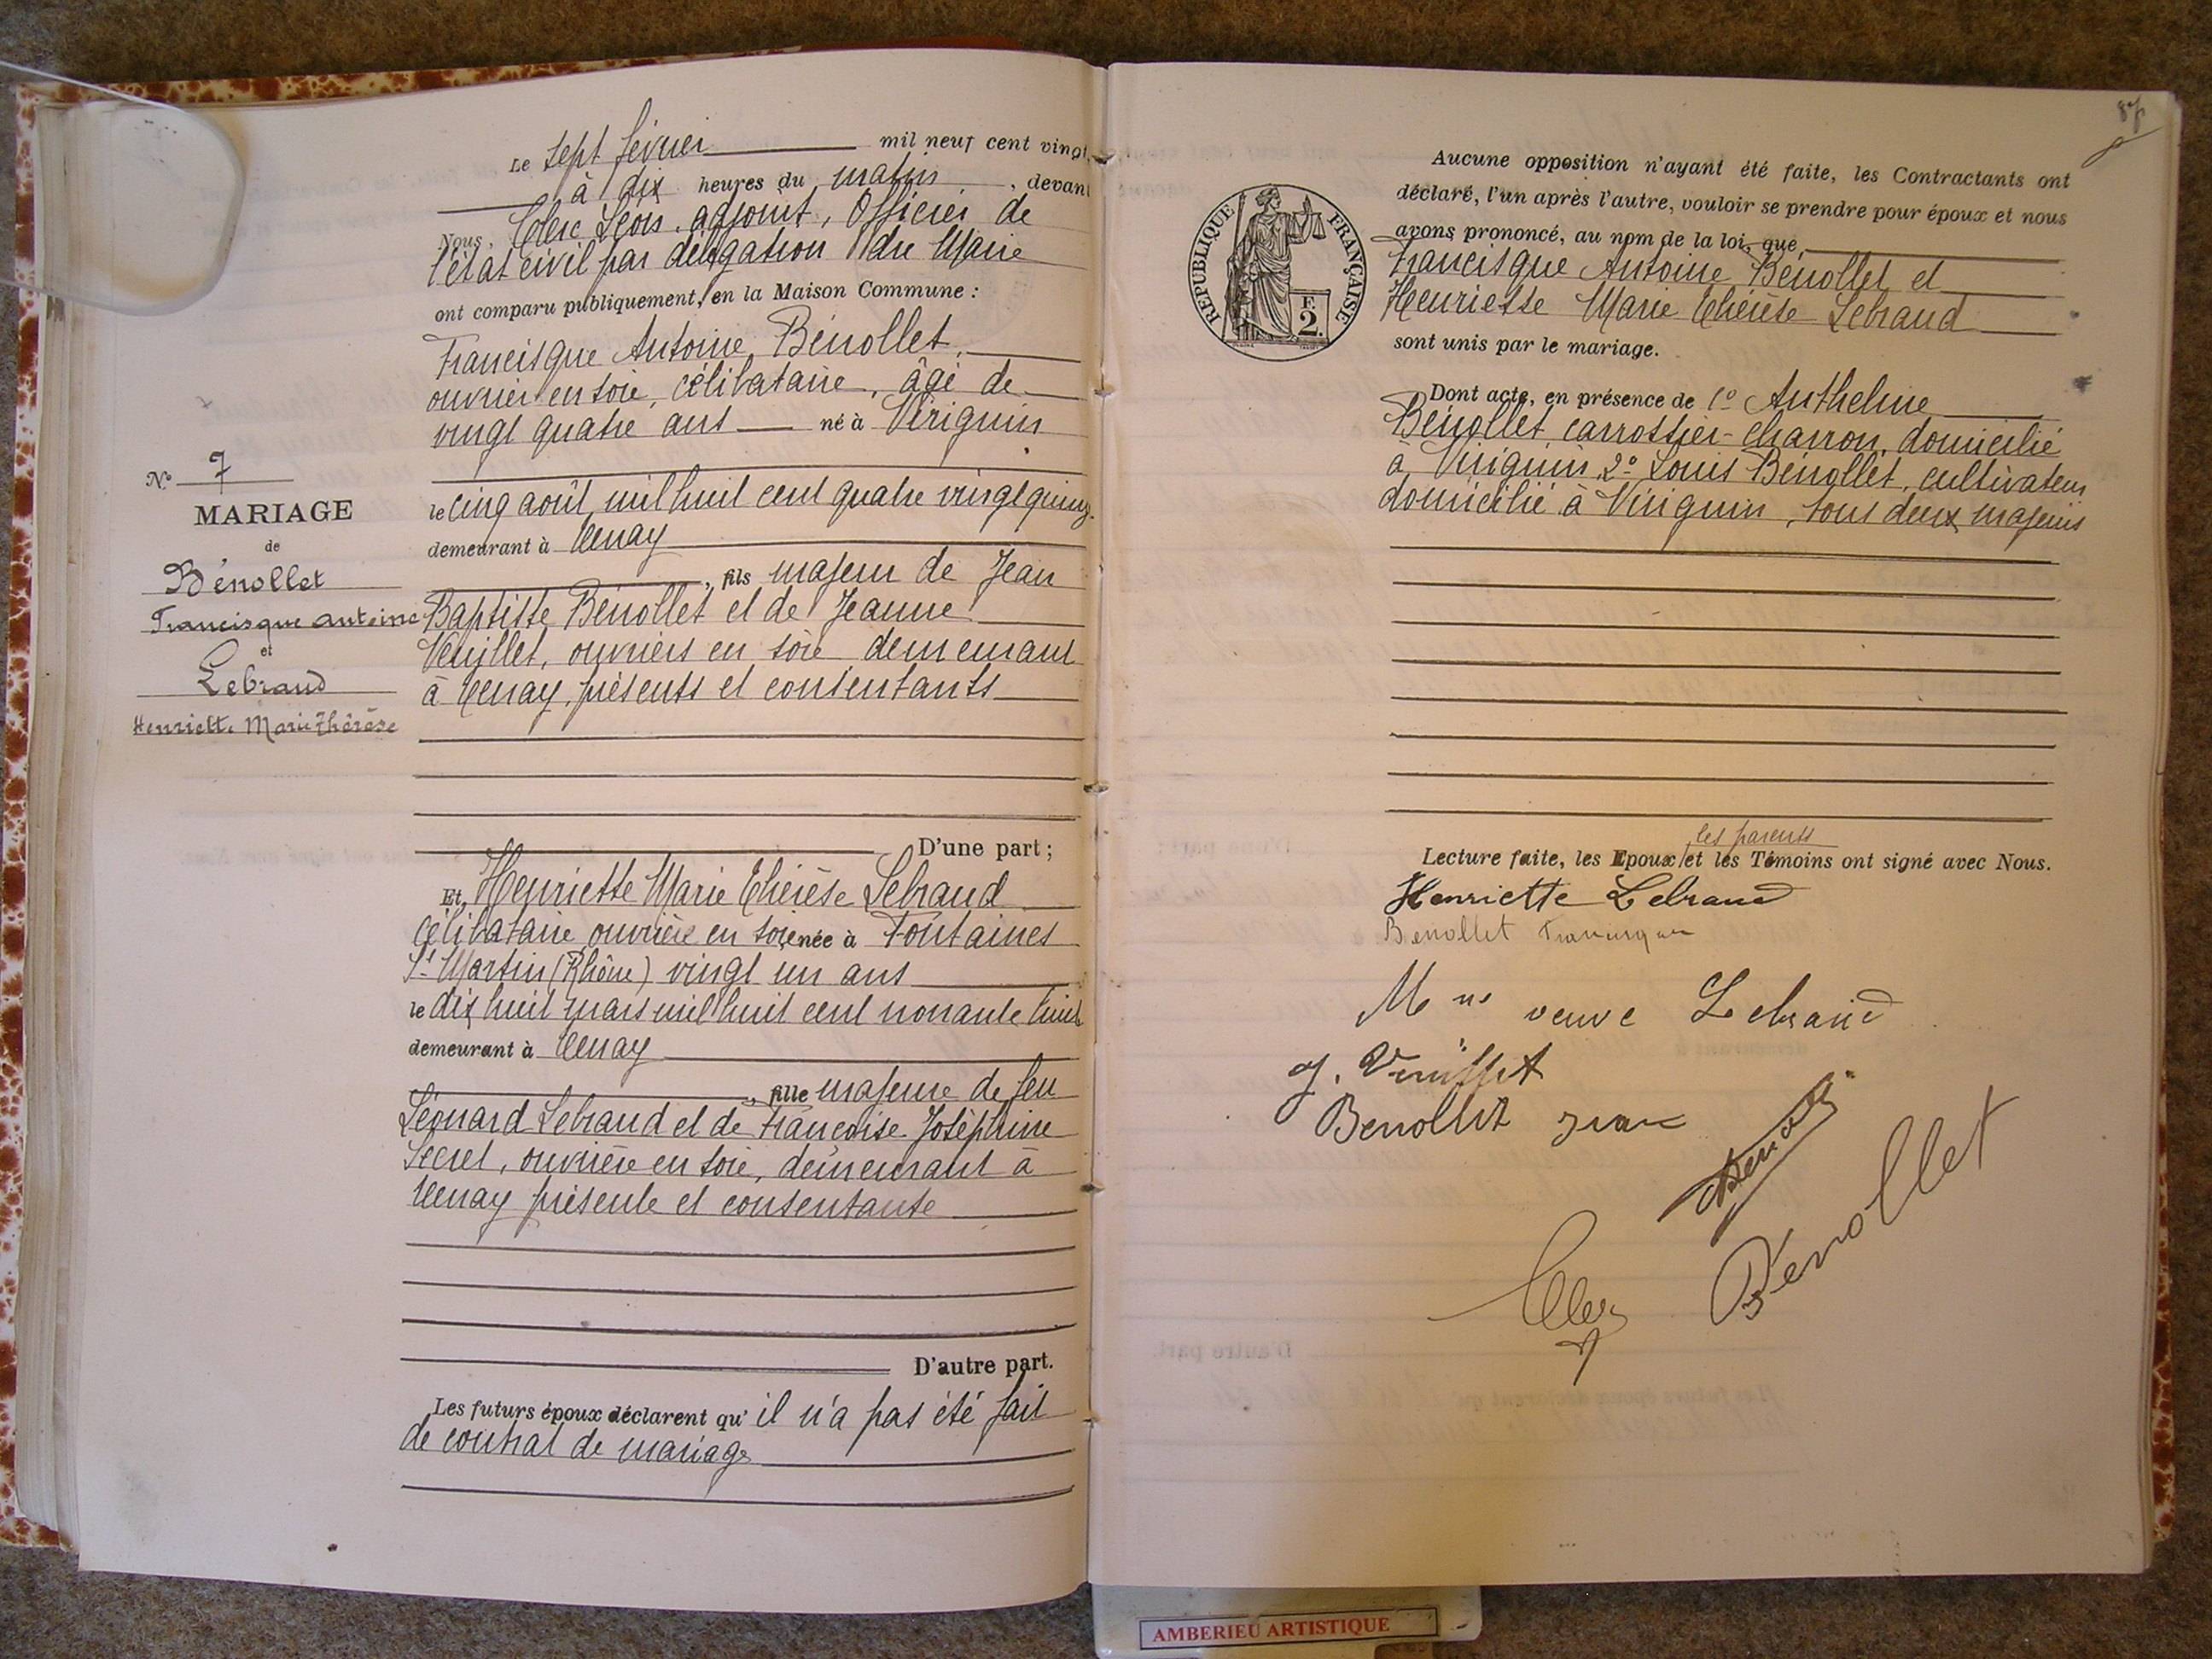 Le sept février mil neuf cent vingt
à dix heures du matin, devant
Nous, Clerc Léon, adjoint, Officier de
l'état civil par délégation du Maire
ont comparu publiquement, en la Maison Commune :
Francisque Antoine Bénollet,
ouvrier en soie, célibataire, âgé de
vingt quatre ans né à Virignin
le cinq août mil huit cent quatre vingt quinz
demeurant à Tenay
, fils majeur de Jean
Baptiste Bénollet et de Jeanne
ouvriers en soie demeurant
à Tenay, présents et consentants
D'une part ;
Et, Henriette Marie Thérèse Lebraud
célibataire, ouvrière en soie née à Fontaines
St Martin (Rhône) vingt un ans
le dix huit mars mil huit cent nonante huit
demeurant à Tenay
, fille majeure de feu
Léonard Lebraud et de Françoise Joséphine
Secret, ouvrière en soie, demeurant à
Tenay présente et consentante
D'autre part.
Les futurs époux déclarent qu' il n'a pas été fait
de contrat de mariage
No 7
MARIAGE
de
Bénollet
Francisque antoine
et
Lebraud
Henriette Marie Thérèse
87
Aucune opposition n'ayant été faite, les Contractants ont
déclaré, l'un après l'autre, vouloir se prendre pour époux et nous
avons prononcé, au nom de la loi, que
Francisque Antoine Bénollet et
Henriette Marie Thérèse Lebraud
sont unis par le mariage.
RÉPUBLIQUE FRANÇAISE
E
2.
Dont acte, en présence de 1º Anthelme
Bénollet, carrossier-charron, domicilié
à Virignin 2º Louis Bénollet, cultivateur
domicilié à Virignin, tous deux majeurs
les parents
Lecture faite, les Epoux et les Témoins ont signé avec Nous.
Henriette Lebraud
Benollet Francisque
Mme veuve Lebraud
Benollet Jean
Benollet
Clerc
AMBERIEU ARTISTIQUE